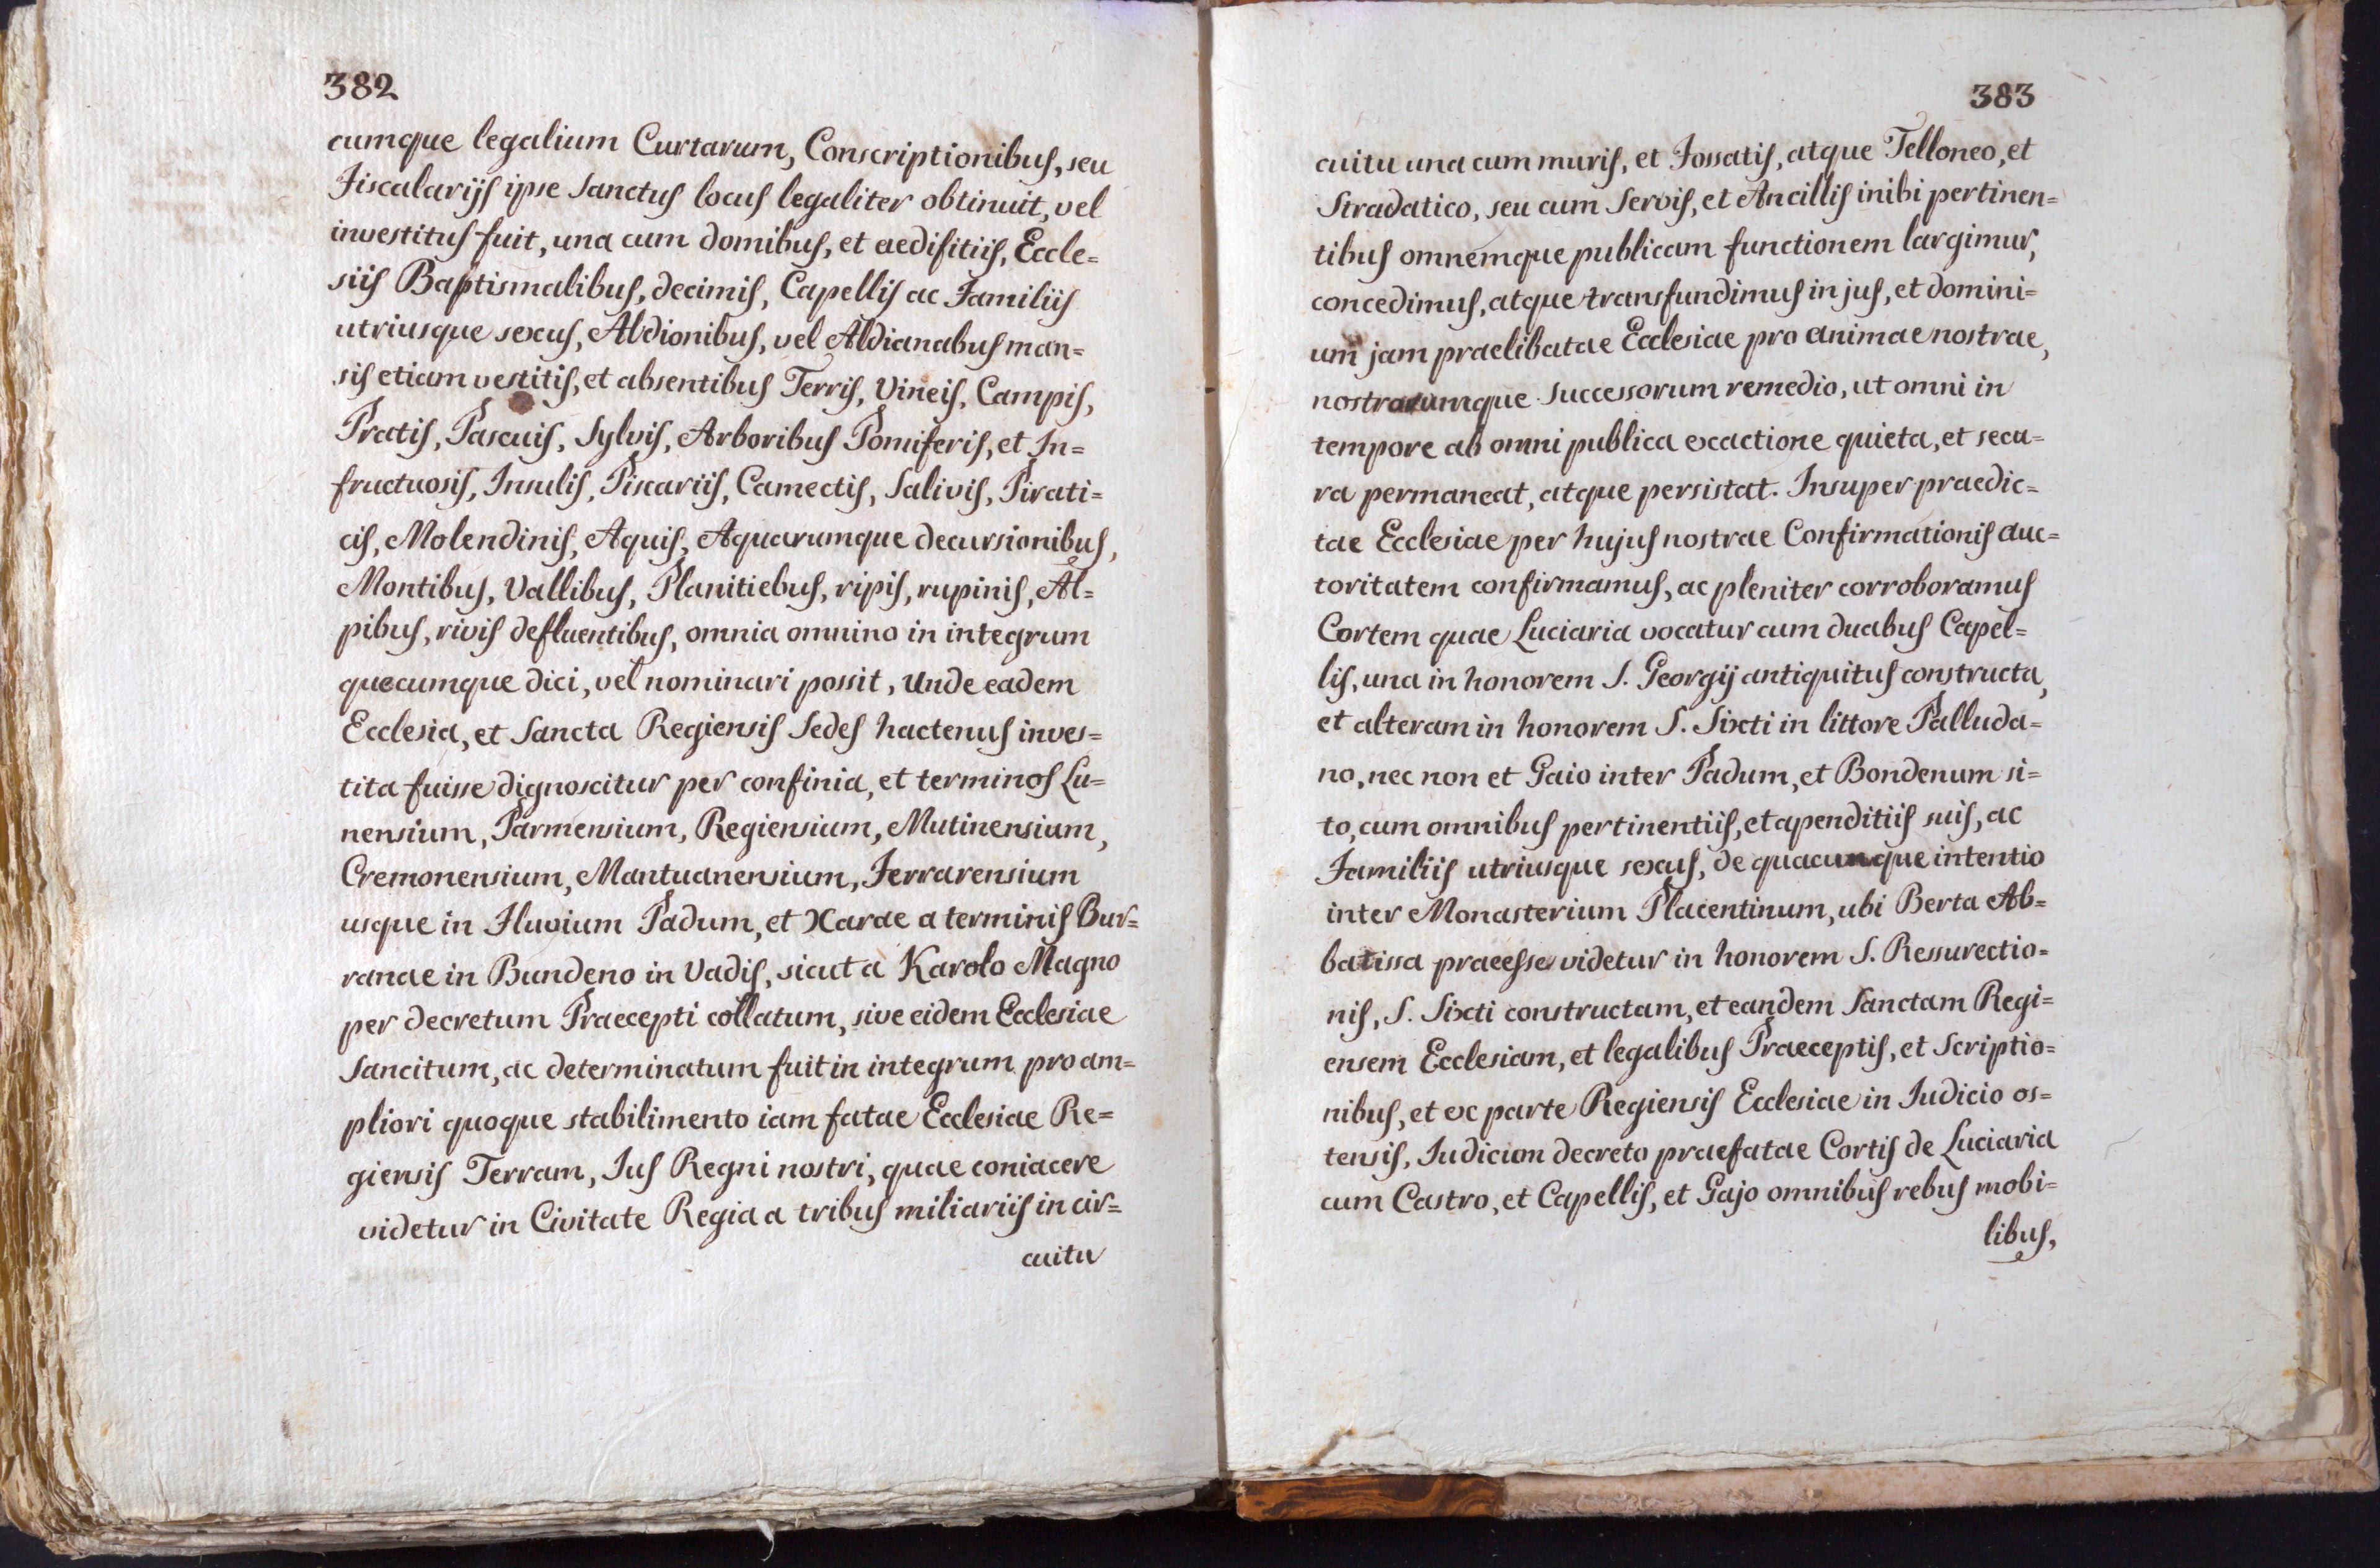 382
cumque legalium Curtarum, Conscriptionibus, seu
Fiscalarijs ipse Sanctus locus legaliter obtinuit, vel
investitus fuit, una cum domibus, et aedifitiis, Eccle=
siis Baptismalibus, decimis, Capellis ac Familiis
utriusque sexus, Aldionibus, vel Aldianabus man=
sis etiam vestitis, et absentibus Terris, Vineis, Campis,
Pratis, Pascuis, Sylvis, Arboribus Pomiferis, et In=
fructuosis, Insulis, Piscariis, Camectis, Salivis, Pirati=
cis, Molendinis, Aquis, Aquarumque decursionibus,
Montibus, Vallibus, Planitiebus, ripis, rupinis, Al=
pibus, rivis defluentibus, omnia omnino in integrum
quecumque dici, vel nominari possit, Unde eadem
Ecclesia, et Sancta Regiensis Sedes hactenus inves=
tita fuisse dignoscitur per confinia, et terminos Lu=
nensium, Parmensium, Regiensium, Mutinensium,
Cremonensium, Mantuanensium, Ferrarensium
usque in Fluvium Padum, et Xarae a terminis Bur=
ranae in Bundeno in Vadis, sicut a Karolo Magno
per decretum Praecepti collatum, sive eidem Ecclesiae
Sancitum, ac determinatum fuit in integrum pro am=
pliori quoque stabilimento iam fatae Ecclesiae Re=
giensis Terram, Jus Regni nostri, quae coniacere
videtur in Civitate Regia a tribus miliariis in cir=
cuitu
383
cuitu una cum muris, et Fossatis, atque Telloneo, et
Stradatico, seu cum Servis, et Ancillis inibi pertinen=
tibus omnemque publicam functionem largimur,
concedimus, atque transfundimus in jus, et domini=
um jam praelibatae Ecclesiae pro animae nostrae,
nostrorumque Successorum remedio, ut omni in
tempore ab omni publica exactione quieta, et secu=
ra permaneat, atque persistat. Insuper praedic=
tae Ecclesiae per hujus nostrae Confirmationis auc=
toritatem confirmamus, ac pleniter corroboramus
Cortem quae Luciaria vocatur cum duabus Capel=
lis, una in honorem S. Georgij antiquitus constructa,
et alteram in honorem S. Sixti in littore Palluda=
no, nec non et Gaio inter Padum, et Bondenum si=
to, cum omnibus pertinentiis, et apenditiis suis, ac
Familiis utriusque sexus, de quacumque intentio
inter Monasterium Placentinum, ubi Berta Ab=
batissa praeesse videtur in honorem S. Ressurectio=
nis, S. Sixti constructam, et eandem Sanctam Regi=
ensem Ecclesiam, et legalibus Praeceptis, et Scriptio=
nibus, et ex parte Regiensis Ecclesiae in Iudicio os=
tensis, Iudicium decreto praefatae Cortis de Luciaria
cum Castro, et Capellis, et Gajo omnibus rebus mobi=
libus,